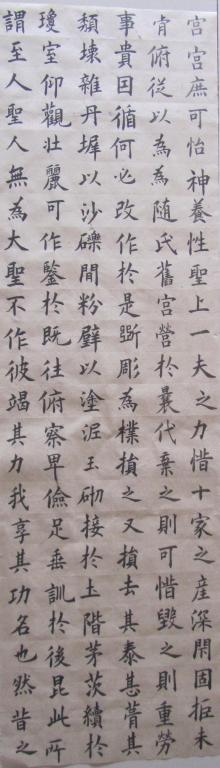 宮宮庶可怡神養性聖上一夫之力惜十家之產深閉固拒未
肯俯從以為為隨氏舊宮營於曩代棄之則可惜毀之則重勞
事貴因循何必改作於是斲彫為樸損之又損去其泰甚葺其
頹壞雜丹墀以沙礫間粉壁以塗泥玉砌接於土階茅茨續於
瓊室仰觀壯麗可作鑒於既往俯察卑儉足垂訓於後昆此所
謂至人聖人無為大聖不作彼竭其力我享其功名也然昔之